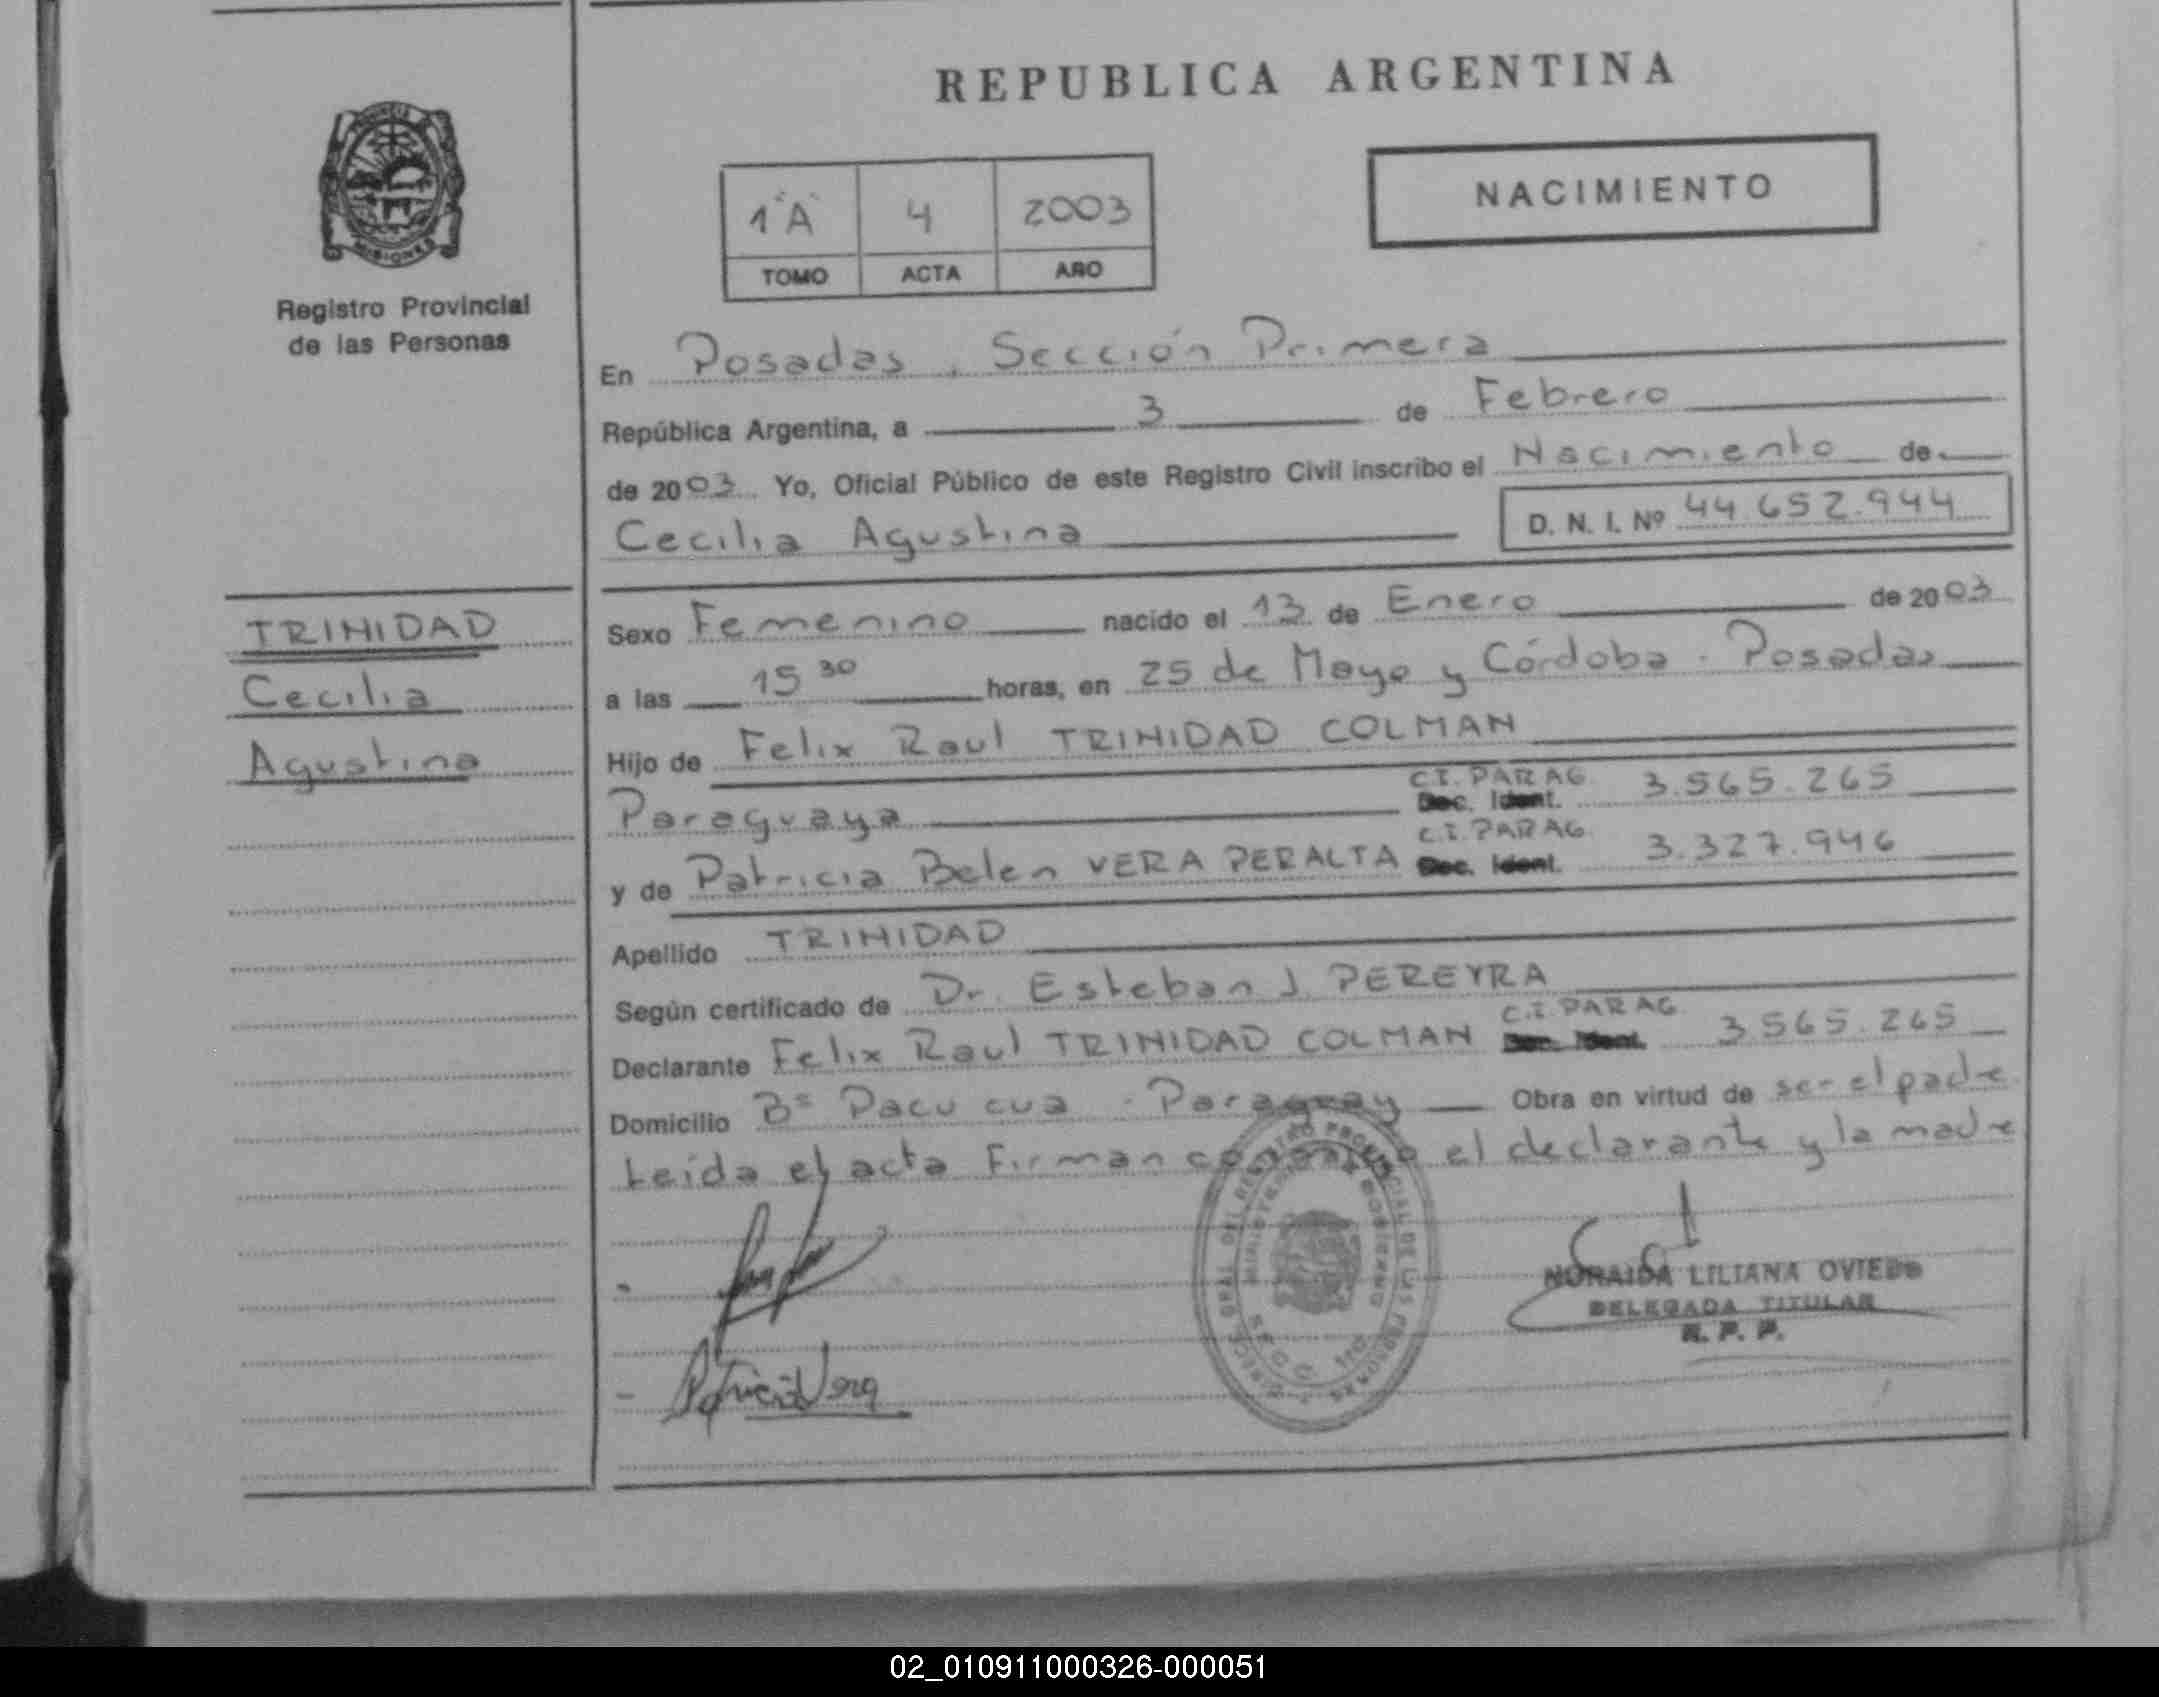 REPUBLICA ARGENTINA
PROVINCIA DE MISIONES
Registro Provincial
de las Personas
1ºA 4 2003
TOMO ACTA AÑO
NACIMIENTO
En Posadas, Sección Primera
República Argentina, a 3 de Febrero
de 2003 Yo, Oficial Público de este Registro Civil inscribo el Nacimiento de
Cecilia Agustina D. N. I. Nº 44.652.944
TRINIDAD
Cecilia
Agustina
Sexo Femenino nacido el 13 de Enero de 2003
a las 15 30 horas, en 25 de Mayo y Córdoba - Posadas
Hijo de Felix Raul TRINIDAD COLMAN
Paraguaya C.I. PARAG. Doc. Ident. 3.565.265
y de Patricia Belen VERA PERALTA C.I. PARAG. Doc. Ident. 3.327.946
Apellido TRINIDAD
Según certificado de Dr. Esteban J. PEREYRA
Declarante Felix Raul TRINIDAD COLMAN C.I. PARAG. Doc. Ident. 3.565.265
Domicilio Bº Pacu cua - Paraguay Obra en virtud de ser el padre
Leída el acta Firman conmigo el declarante y la madre
DIRECCION GRAL. DEL REGISTRO PROVINCIAL DE LAS PERSONAS
MINISTERIO DE GOBIERNO
SECC. 1ra
NORAIDA LILIANA OVIEDO
DELEGADA TITULAR
R. P. P.
Patricia Vera
02_010911000326-000051